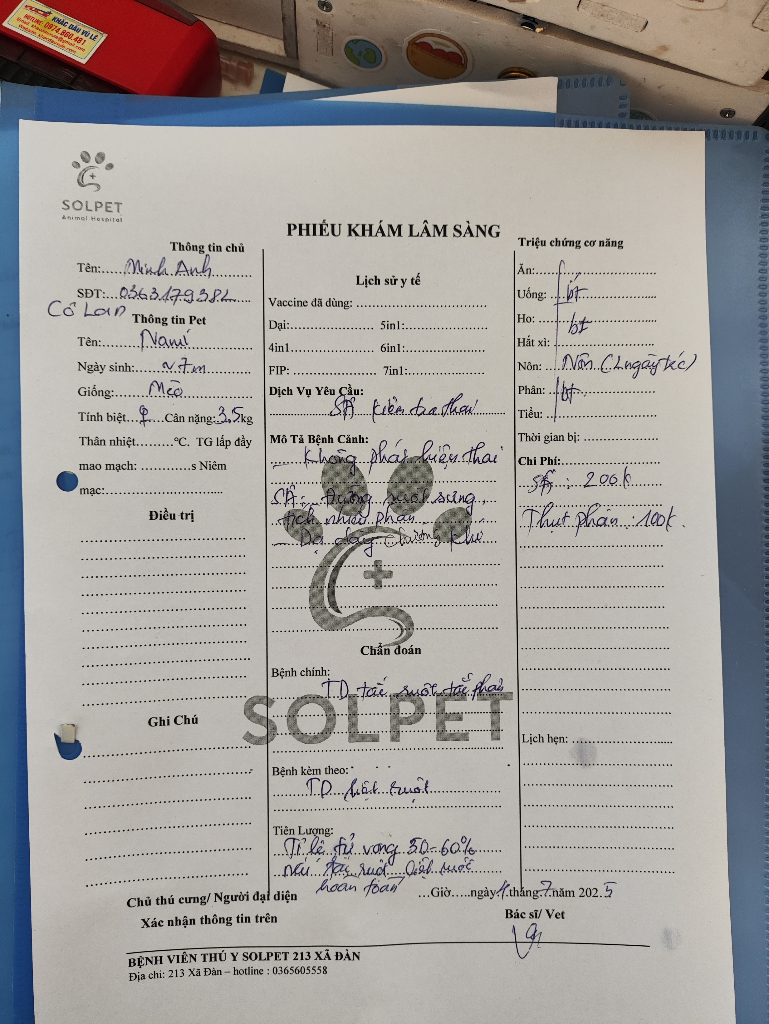 KHẮC DẤU VŨ LÊ
HOTLINE: 0974.866.481
SOLPET
Animal Hospital
PHIẾU KHÁM LÂM SÀNG
Thông tin chủ
Tên: Minh Anh
SĐT: 0363179382
Cô Lan
Thông tin Pet
Tên: Nami
Ngày sinh: ~7m
Giống: Mèo
Tính biệt ♀ Cân nặng: 3,5kg
Thân nhiệt.........°C. TG lấp đầy
mao mạch: ..............s Niêm
mạc:
Điều trị
Ghi Chú
Lịch sử y tế
Vaccine đã dùng:
Dại: 5in1:
4in1 6in1:
FIP: 7in1:
Dịch Vụ Yêu Cầu:
SÂ kiểm tra thai
Mô Tả Bệnh Cảnh:
– Không phát hiện thai
SÂ: Đường ruột sưng,
tích nhiều phân
– Dạ dày chướng khí
Chẩn đoán
Bệnh chính:
TD tắc ruột tắc phân
SOLPET
Bệnh kèm theo:
TD liệt ruột
Tiên Lượng:
Tỉ lệ tử vong 50-60%
nếu tắc ruột liệt ruột
hoàn toàn
Triệu chứng cơ năng
Ăn:
Uống: bt
Ho: bt
Hắt xì:
Nôn: Nôn (2 ngày trước)
Phân: bt
Tiểu:
Thời gian bị:
Chi Phí:
SÂ : 200k
Thụt phân : 100k.
Lịch hẹn:
Chủ thú cưng/ Người đại diện
Xác nhận thông tin trên
...Giờ.....ngày 4 tháng 7 năm 2025
Bác sĩ/ Vet
BỆNH VIỆN THÚ Y SOLPET 213 XÃ ĐÀN
Địa chỉ: 213 Xã Đàn – hotline : 0365605558